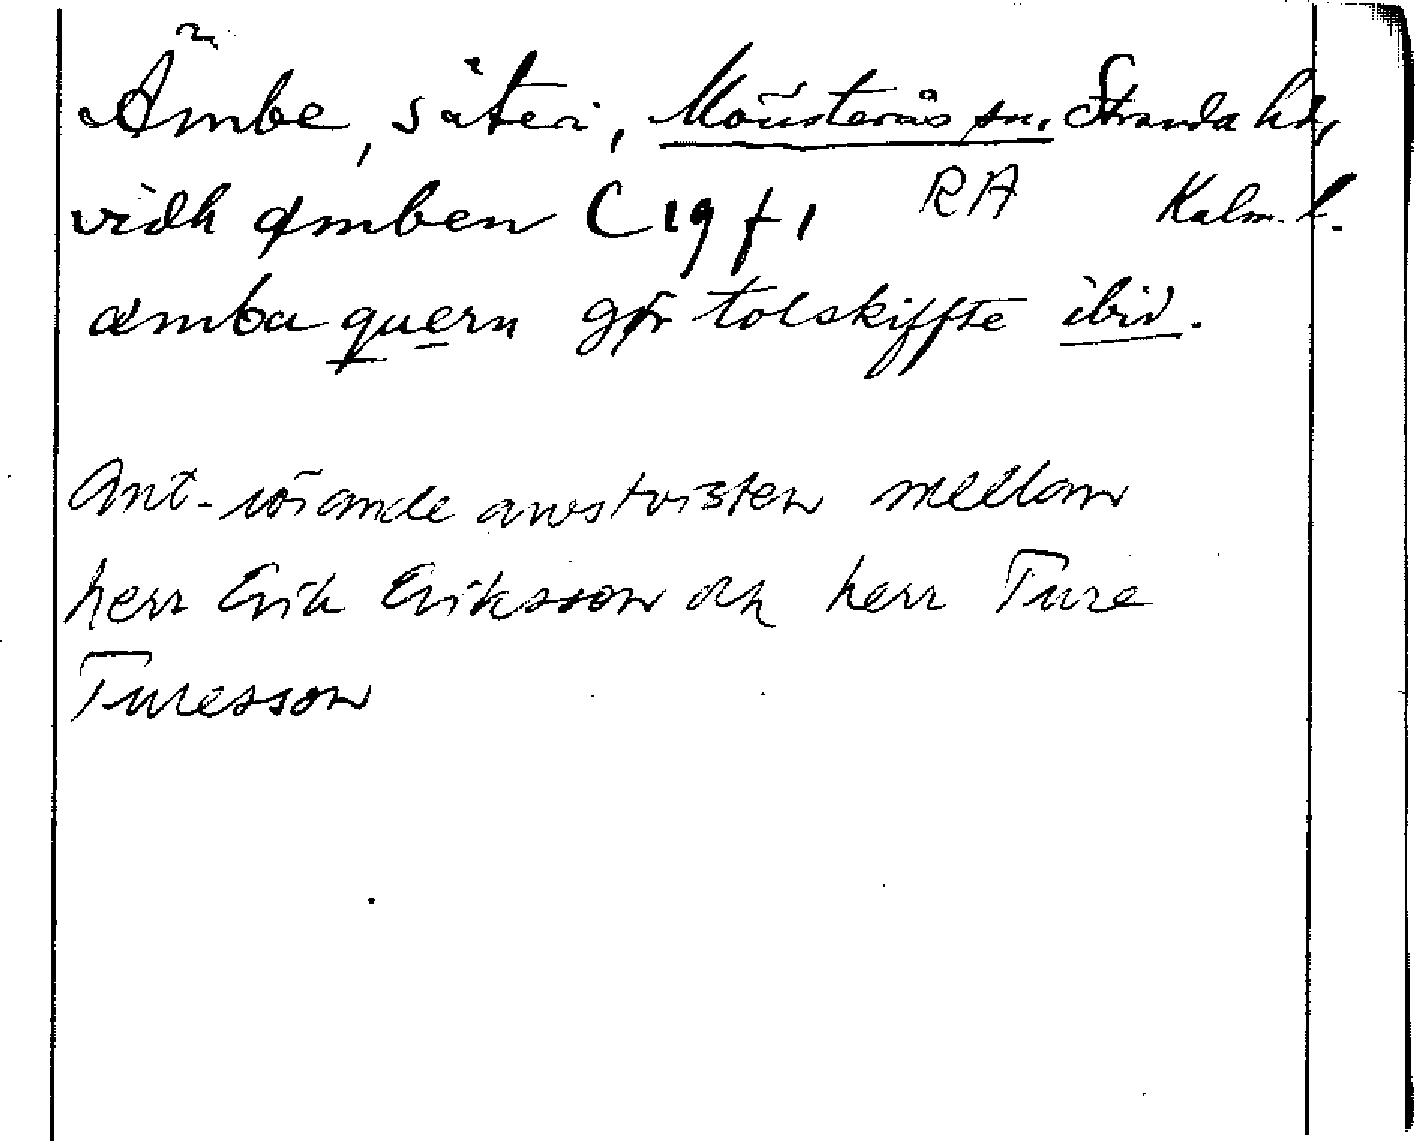 Ämbe, säteri, Mönsterås sn. Stranda hd,
vidh æmben C 19 f 1 RA Kalm. l.
æmba quern gør tolskiffte ibid.
Ant. rörande arvstvisten mellan
herr Erik Eriksson och herr Ture
Turesson